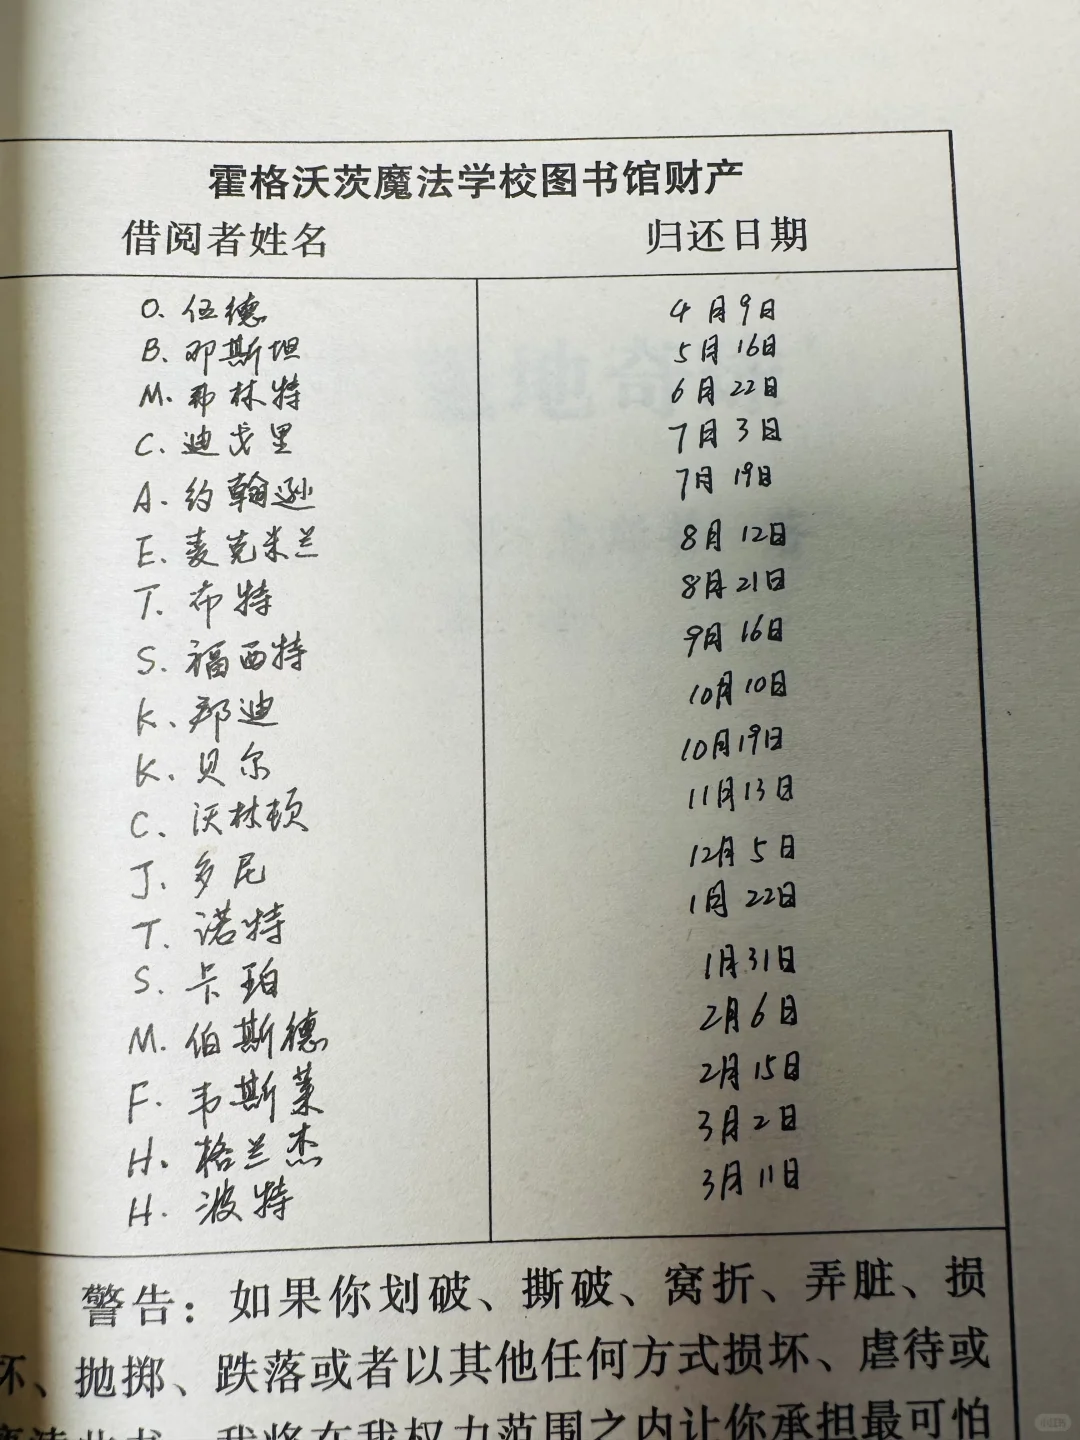 霍格沃茨魔法学校图书馆财产
借阅者姓名 归还日期
O. 伍德 4月9日
B. 邓斯坦 5月16日
M. 弗林特 6月22日
C. 迪戈里 7月3日
A. 约翰逊 7月19日
E. 麦克米兰 8月12日
T. 布特 8月21日
S. 福西特 9月16日
K. 邦迪 10月10日
K. 贝尔 10月19日
C. 沃林顿 11月13日
J. 多尼 12月5日
T. 诺特 1月22日
S. 卡珀 1月31日
M. 伯斯德 2月6日
F. 韦斯莱 2月15日
H. 格兰杰 3月2日
H. 波特 3月11日
警告：如果你划破、撕破、窝折、弄脏、损
坏、抛掷、跌落或者以其他任何方式损坏、虐待或
此书，我将在我权力范围之内让你承担最可怕
小红书